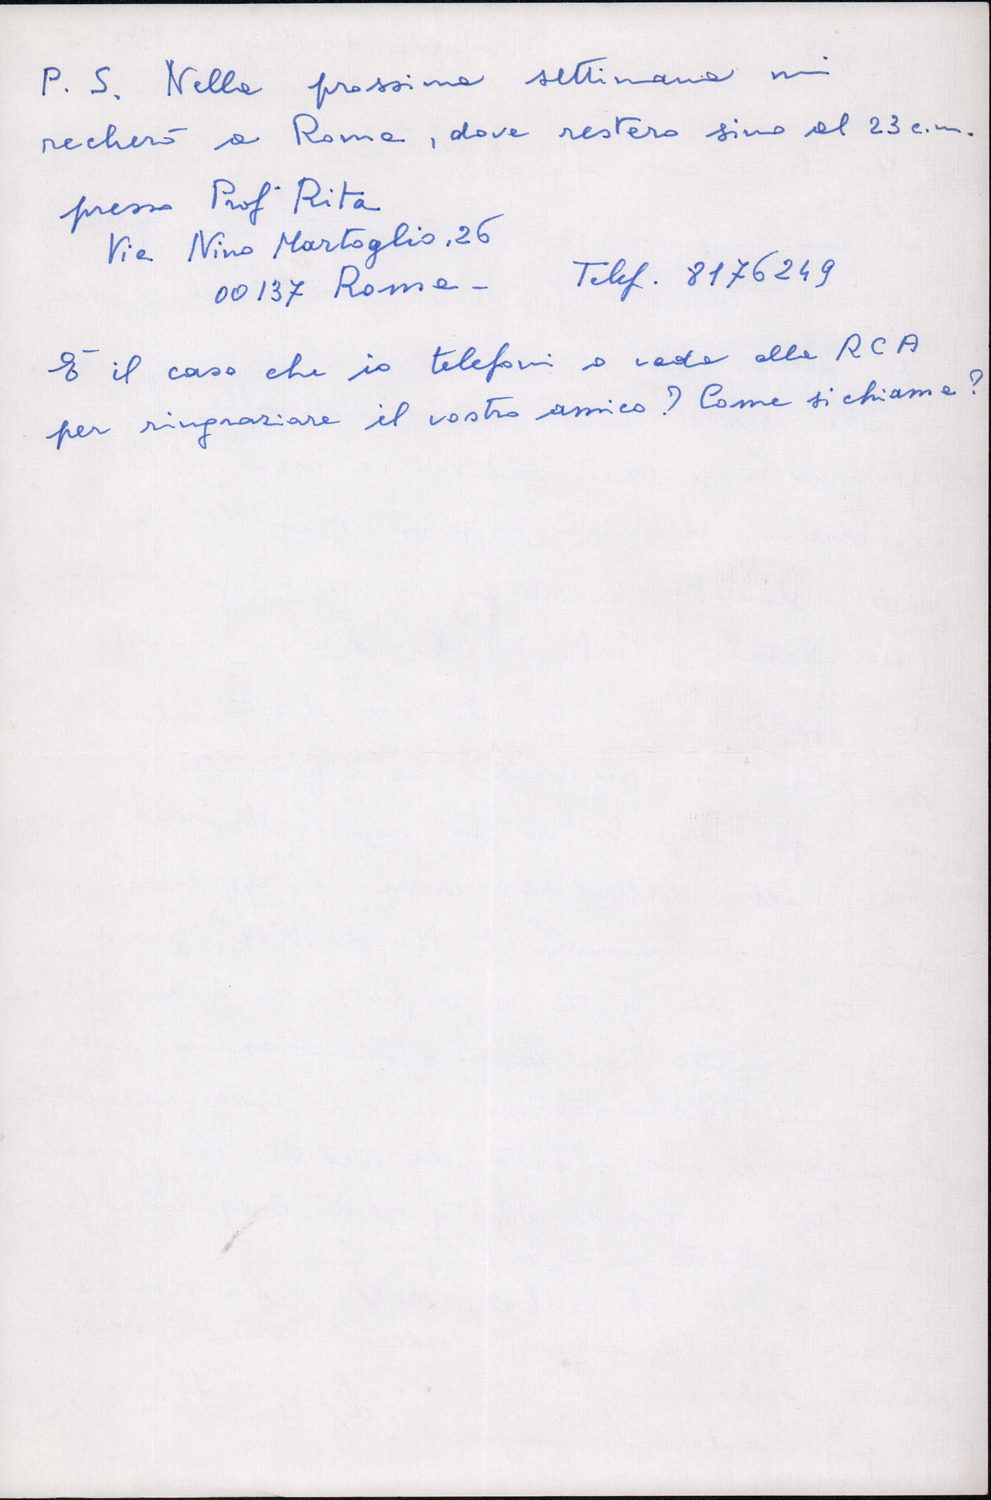 P. S. Nella prossima settimana mi
recherò a Roma, dove resterò sino al 23 c.m.
presso Prof. Rita
Via Nino Martoglio, 26
00137 Roma - Telef. 8176249
È il caso che io telefoni o vada alla RCA
per ringraziare il vostro amico? Come si chiama?